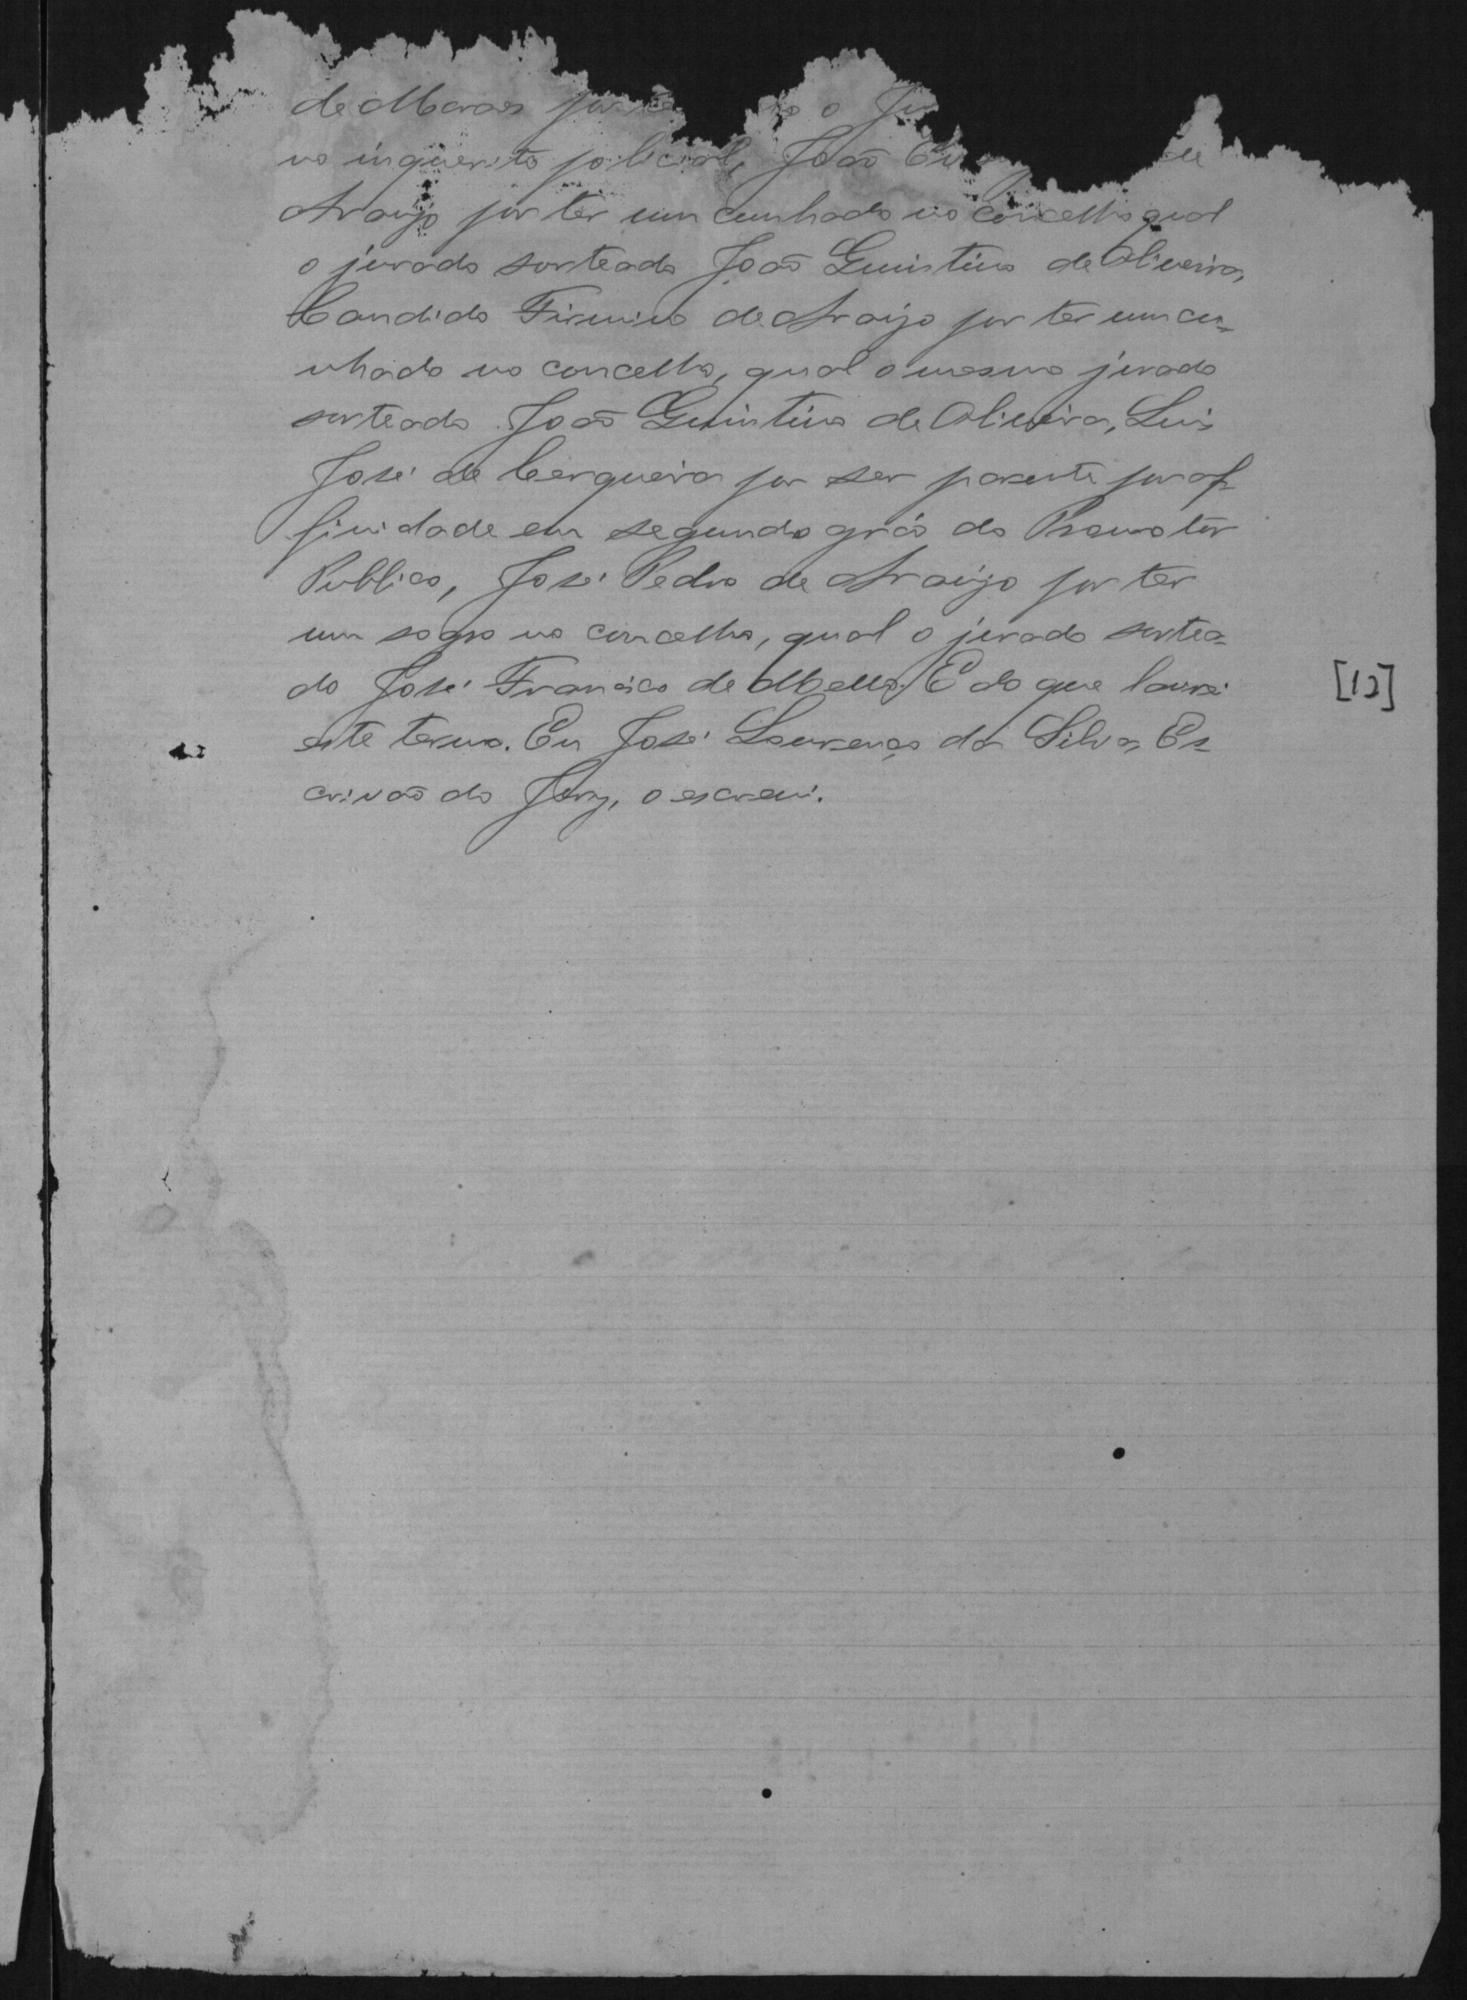 de Moraes por o
no inquerito policial, João de
Araujo por ter um cunhado no concelho qual
o jurado sorteado João Quintino de Oliveira,
Candido Firmino de Araujo por ter um cu-
nhado no concelho, qual o mesmo jurado
sorteado João Quintino de Oliveira, Luis
José de Cerqueira por ser parente por af-
finidade em segundo gráo do Promotor
Publico, José Pedro de Araujo por ter
um sogro no concelho, qual o jurado sortea-
do José Francisco de Mello. E do que lavrei
este termo. Eu José Lourenço da Silva, Es-
crivão do Jury, o escrevi.
[12]